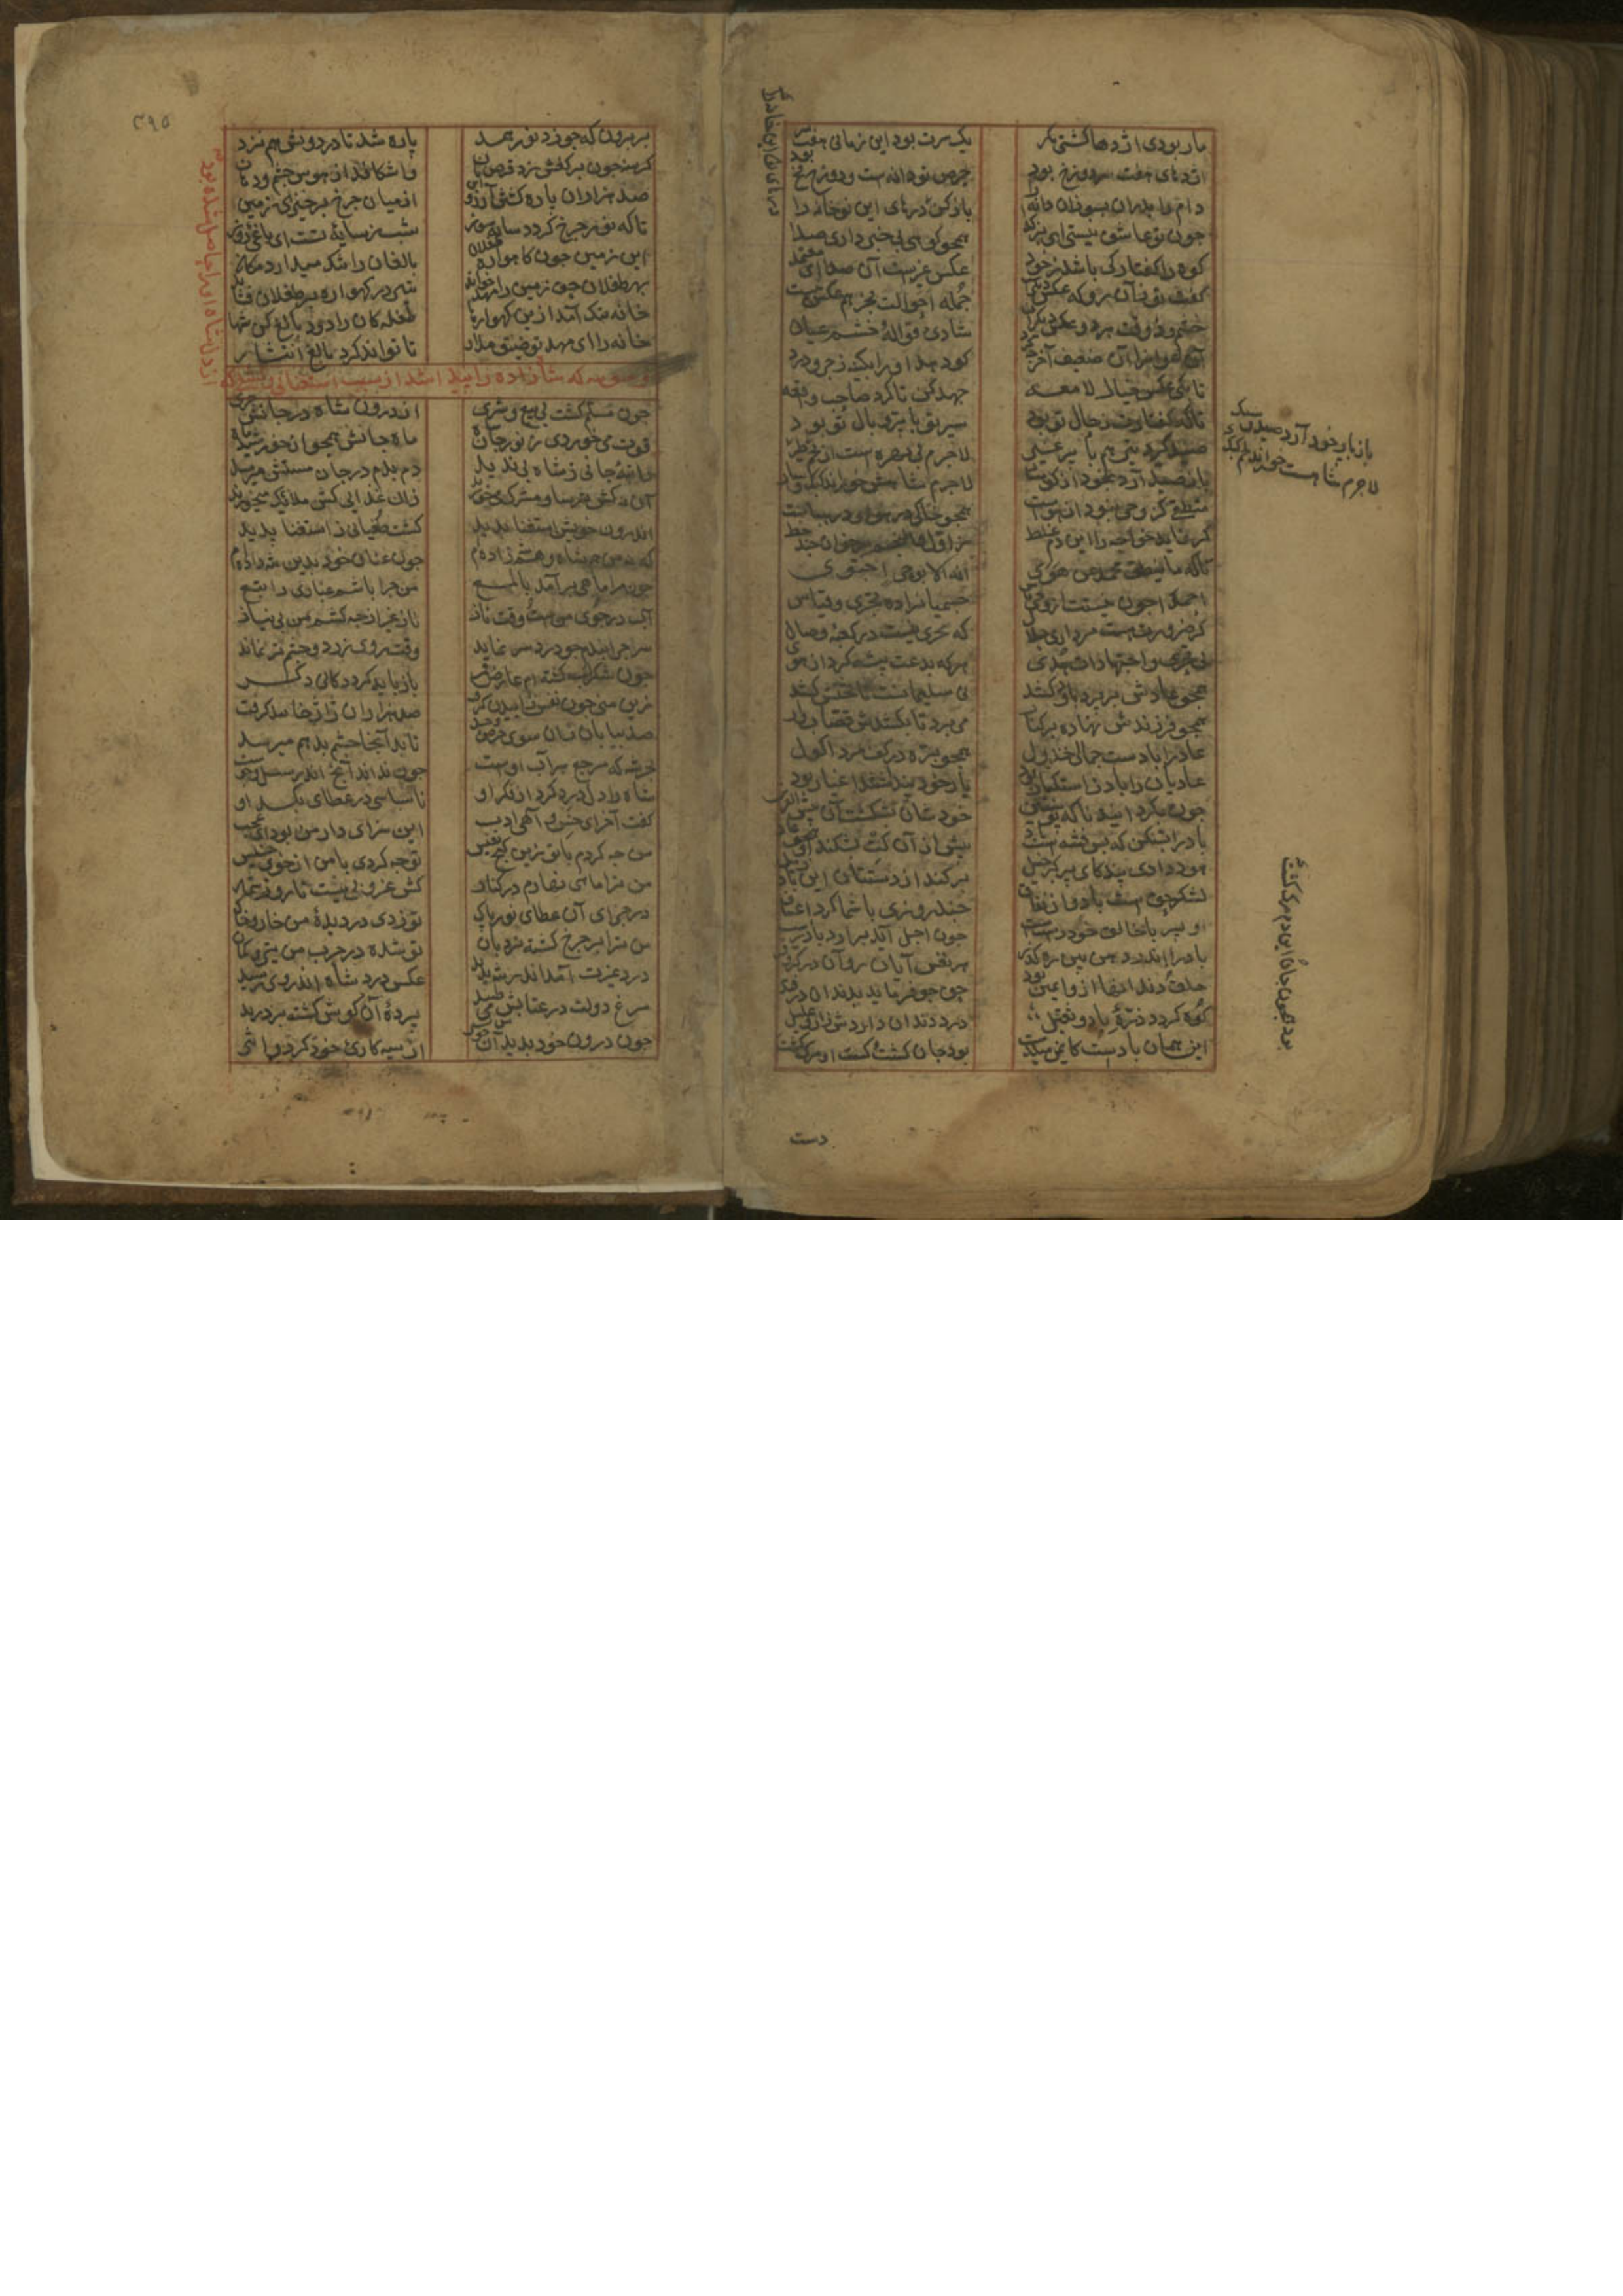 مار بودی اژدها کشتی مکر یک سرت بود این زمانی هفت سر
اژدهای هفت سر دوزخ بود حرص تو دانه ست و دوزخ فخ بود
دام را بدران بسوزان دانه را باز کن درهای این نو خانه را
چون تو عاشق نیستی ای نر کدا همچو کوهی بی خبر داری صدا
کوه را کفتار کی باشد ز خود عکس غیرست آن صدا ای معتمد
کفت تو زآن رو که عکس دیکریست جمله احوالت بجز هم عکس نیست
خشم و ذوقت هر دو عکس دیکران شادی قواله خشم عوان
آن عوان را آن ضعیف آخر چه کرد کو دهد او را بکینه زجر و درد
تا بکی عکس خیال لامعه جهد کن تا کردد صاحب واقعه
تا که کفتارت ز حال تو بود سیر تو با پر و بال تو بود
صید کیرد تیر هم با پر غیر لاجرم بی بهره است از لحم طیر
باز صید آرد بخود از کوهسار لاجرم شاهش خوراند کبک و سار
منطقی کز وحی نبود از هواست همچو خاکی در هوا و در هباست
کر نماید خواجه را این دم غلط ز اول والنجم بر خوان چند خط
تا که ما ینطق محمد عن هوی ان هو الا بوحی احتوی
احمدا چون نیستت از وحی یاس جسمیان را ده تحری و قیاس
کز ضرورت هست مرداری حلال که تحری نیست در کعبه وصال
بی تحری و اجتهادات هدی هر که بدعت پیشه کرد از هوی
همچو عادش بر برد باد و کشد نی سلیمانست تا تختش کشد
همچو فرزندش نهاده بر کنار می برد تا بکشدش قصاب وار
عاد را بادست حمالی خذول همچو بره در کف مرد اکول
عادیان را باد ز استکبار بود یار خود پنداشتند اغیار بود
چون بکردانید ناکه پوستین خودشان بشکست آن بئس القرین
باد را بشکن که بس فتنه است باد پیش از آن کت بشکند او همچو عاد
هود دادی پند کای پر کبر خیل بر کند از دستتان این باد ذیل
لشکر حق است باد و از نفاق چند روزی با شما کرد اعتناق
او بسر با خالق خود راستست چون اجل آید برآرد باد دست
باد را اندر دهن بین ره کذر هر نفس آیان روان در کر و فر
حلق و دندانها ازو ایمن بود حق چو فرماید بدندان در فتد
کوه کردد ذره باد و ثقیل درد دندان داردش زار و علیل
این همان بادست کایمن میکذشت بود جان کشت کشت او مرک کشت
باز باپر خود آرد صید نیک
لاجرم شاهست خوراند لحم کبک
بود همچون جان و این دم مرک کشت
دست
٣٩٥
بر برون که چو زد نور صمد پاره شد تا در درونش هم زند
کرسنه چون بر کفش زد قرص نان وا شکافد از هوس چشم و دهان
صد هزاران پاره کشتن ارزد این از میان چرخ برخیز ای زمین
تا که نور چرخ کردد سایه سوز شب ز سایه تست ای یاغی روز
این زمین چون کاهواره طفلکان بالغان را تنک میدارد مکان
بهر طفلان حق زمین را مهد خواند شیر در کهواره بر طفلان فشاند
خانه تنک آمد ازین کهوارها طفلکان را زود بالغ کن شها
خانه را ای مهد تو ضیق مدار تا تواند کرد بالغ انتشار
وسوسه که شاه زاده را پیدا شد از سبب استغنائی و کشفی که
از دل شاه او را حاصل شده بود
چون مسلم کشت بی بیع و شری از درون شاه در جانش جری
قوت می خوردی ز نور جان شاه ماه جانش همچو از خورشید ماه
راتبه جانی ز شاه بی ندید دم بدم در جان مستش میرسید
آن نه کش ترسا و مشرک می خورند زان غذایی کش ملایک میخورند
اندرون خویش استغنا بدید کشت طغیانی ز استغنا پدید
که نه من هم شاه و هم شه زاده ام چون عنان خود بدین شه داده ام
چون مرا ماهی بر آمد با لمع من چرا باشم غباری را تبع
آب در جوی من است و وقت ناز ناز غیر از چه کشم من بی نیاز
سر چرا بندم چو درد سر نماند وقت روی زرد و چشم تر نماند
چون شکر لب کشته ام عارض قمر باز باید کرد دکانی دکر
زین منی چون نفس زاییدن کرفت صد هزاران ژاژ خاییدن کرفت
صد بیابان زان سوی حرص و حسد تا بد آنجا چشم بد هم میرسد
بحر شه که مرجع هر آب اوست چون نداند آنچ اندر سیل و جوست
شاه را دل درد کرد از فکر او ناسپاسی در عطای بکر او
کفت آخر ای خس واهی ادب این سزای داد من بود ای عجب
من چه کردم با تو زین کنج نفیس تو چه کردی با من از خوی خسیس
من ترا ماهی نهادم در کنار کش غروبی نیست تا روز شمار
در جزای آن عطای نور پاک تو زدی در دیده من خار و خاک
من ترا بر چرخ کشته نردبان تو شده در حرب من تیر و کمان
درد غیرت آمد اندر شه پدید عکس درد شاه اندر وی رسید
مرغ دولت در عتابش می طپید پرده آن کوشه کشته بر درید
چون درون خود بدید آن خوش پسر از سیه کاری خود کرد و اثر